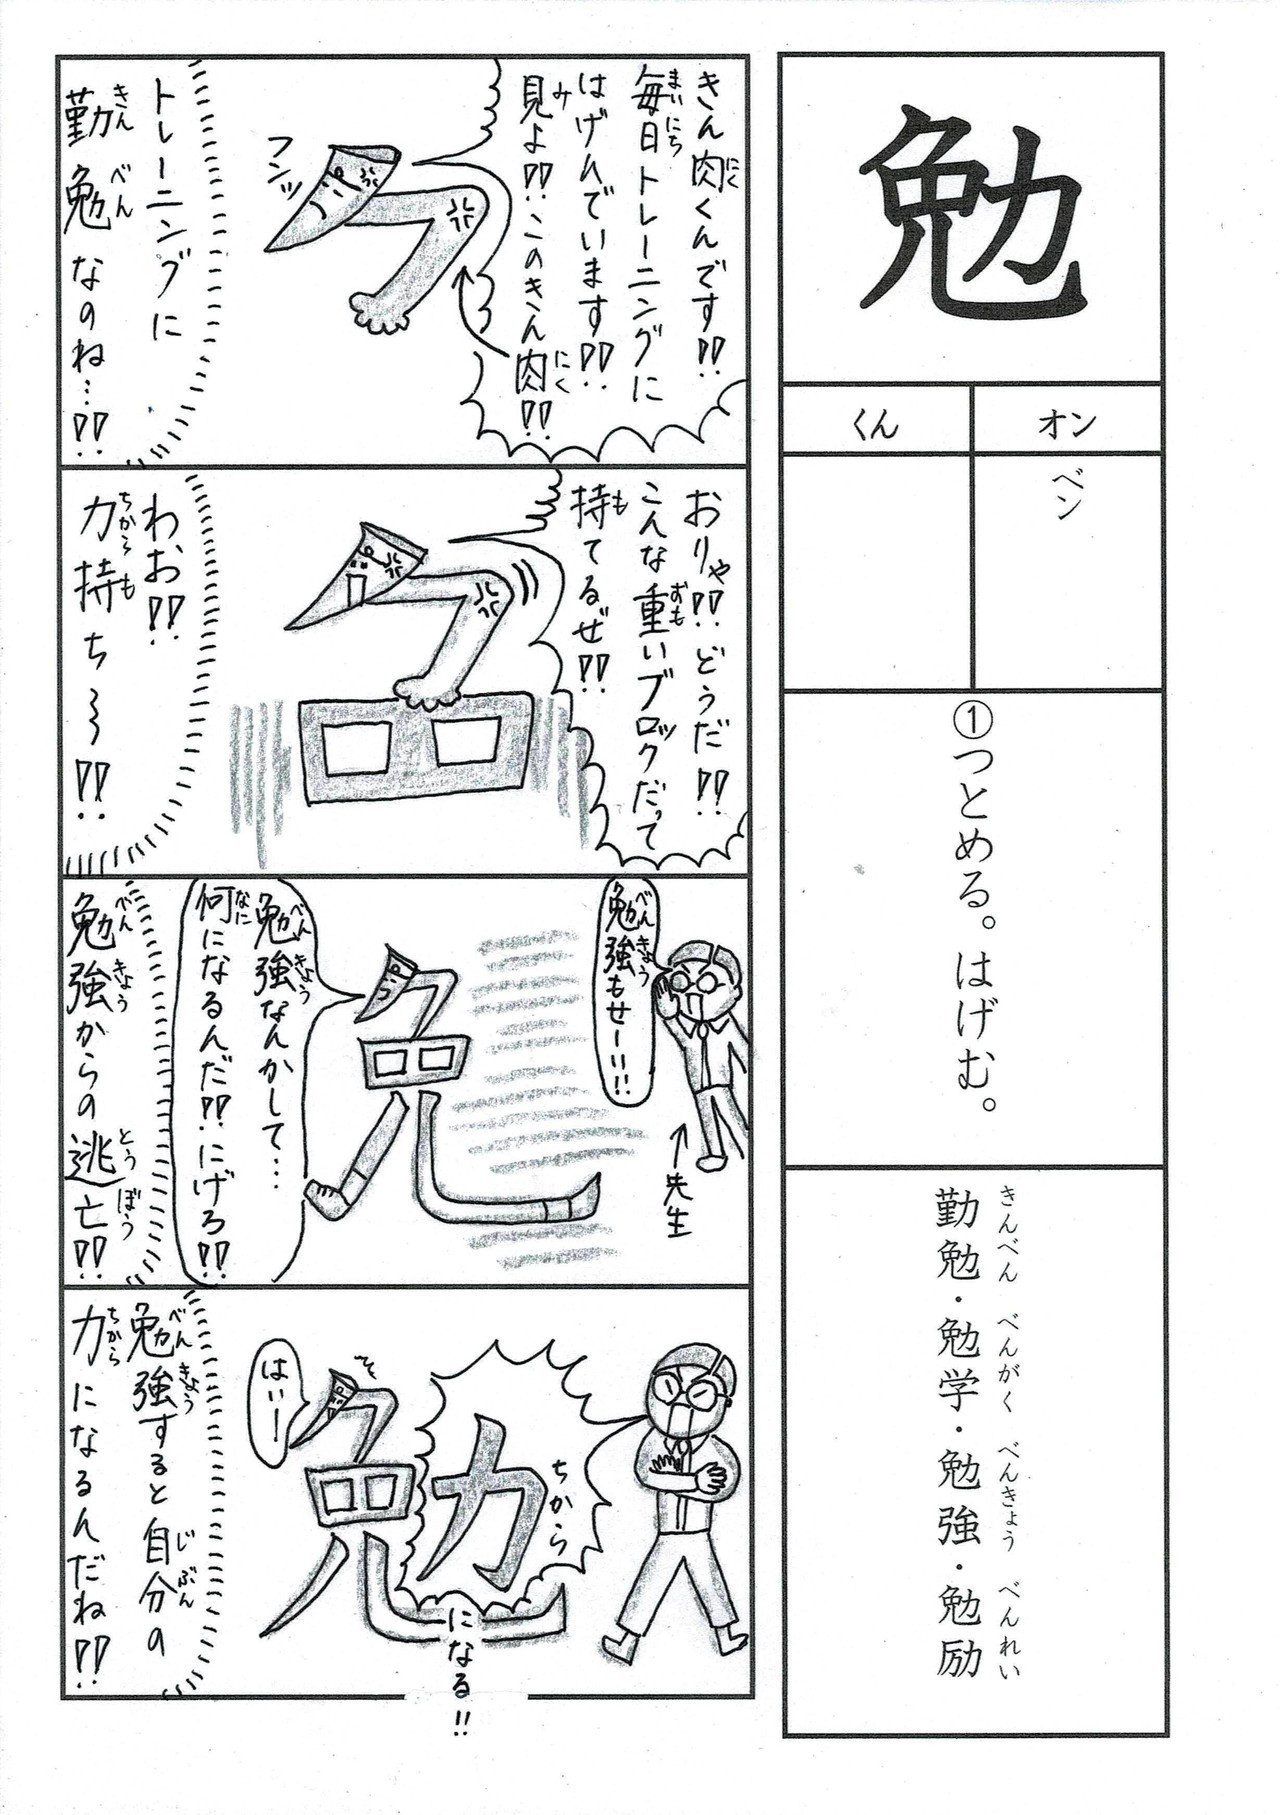 勉
オン
くん
ベン
①つとめる。はげむ。
きんべん べんがく べんきょう べんれい
勤勉・勉学・勉強・勉励
きん肉くんです!!
にく
毎日トレーニングに
まいにち
はげんでいます!!
見よ!!このきん肉!!
み
にく
フンッ
トレーニングに
勤勉なのね…!!
きんべん
おりゃ!!どうだ!!
こんな重いブロックだって
おも
持てるぜ!!
も
わお!!
力持ち～!!
ちからも
勉強もせー!!!
べんきょう
←先生
勉強なんかして…
べんきょう
何になるんだ!!にげろ!!
なに
勉強からの逃亡!!
べんきょう
とうぼう
力
ちから
になる!!
はいー
勉強すると自分の
べんきょう
じぶん
力になるんだね!!
ちから